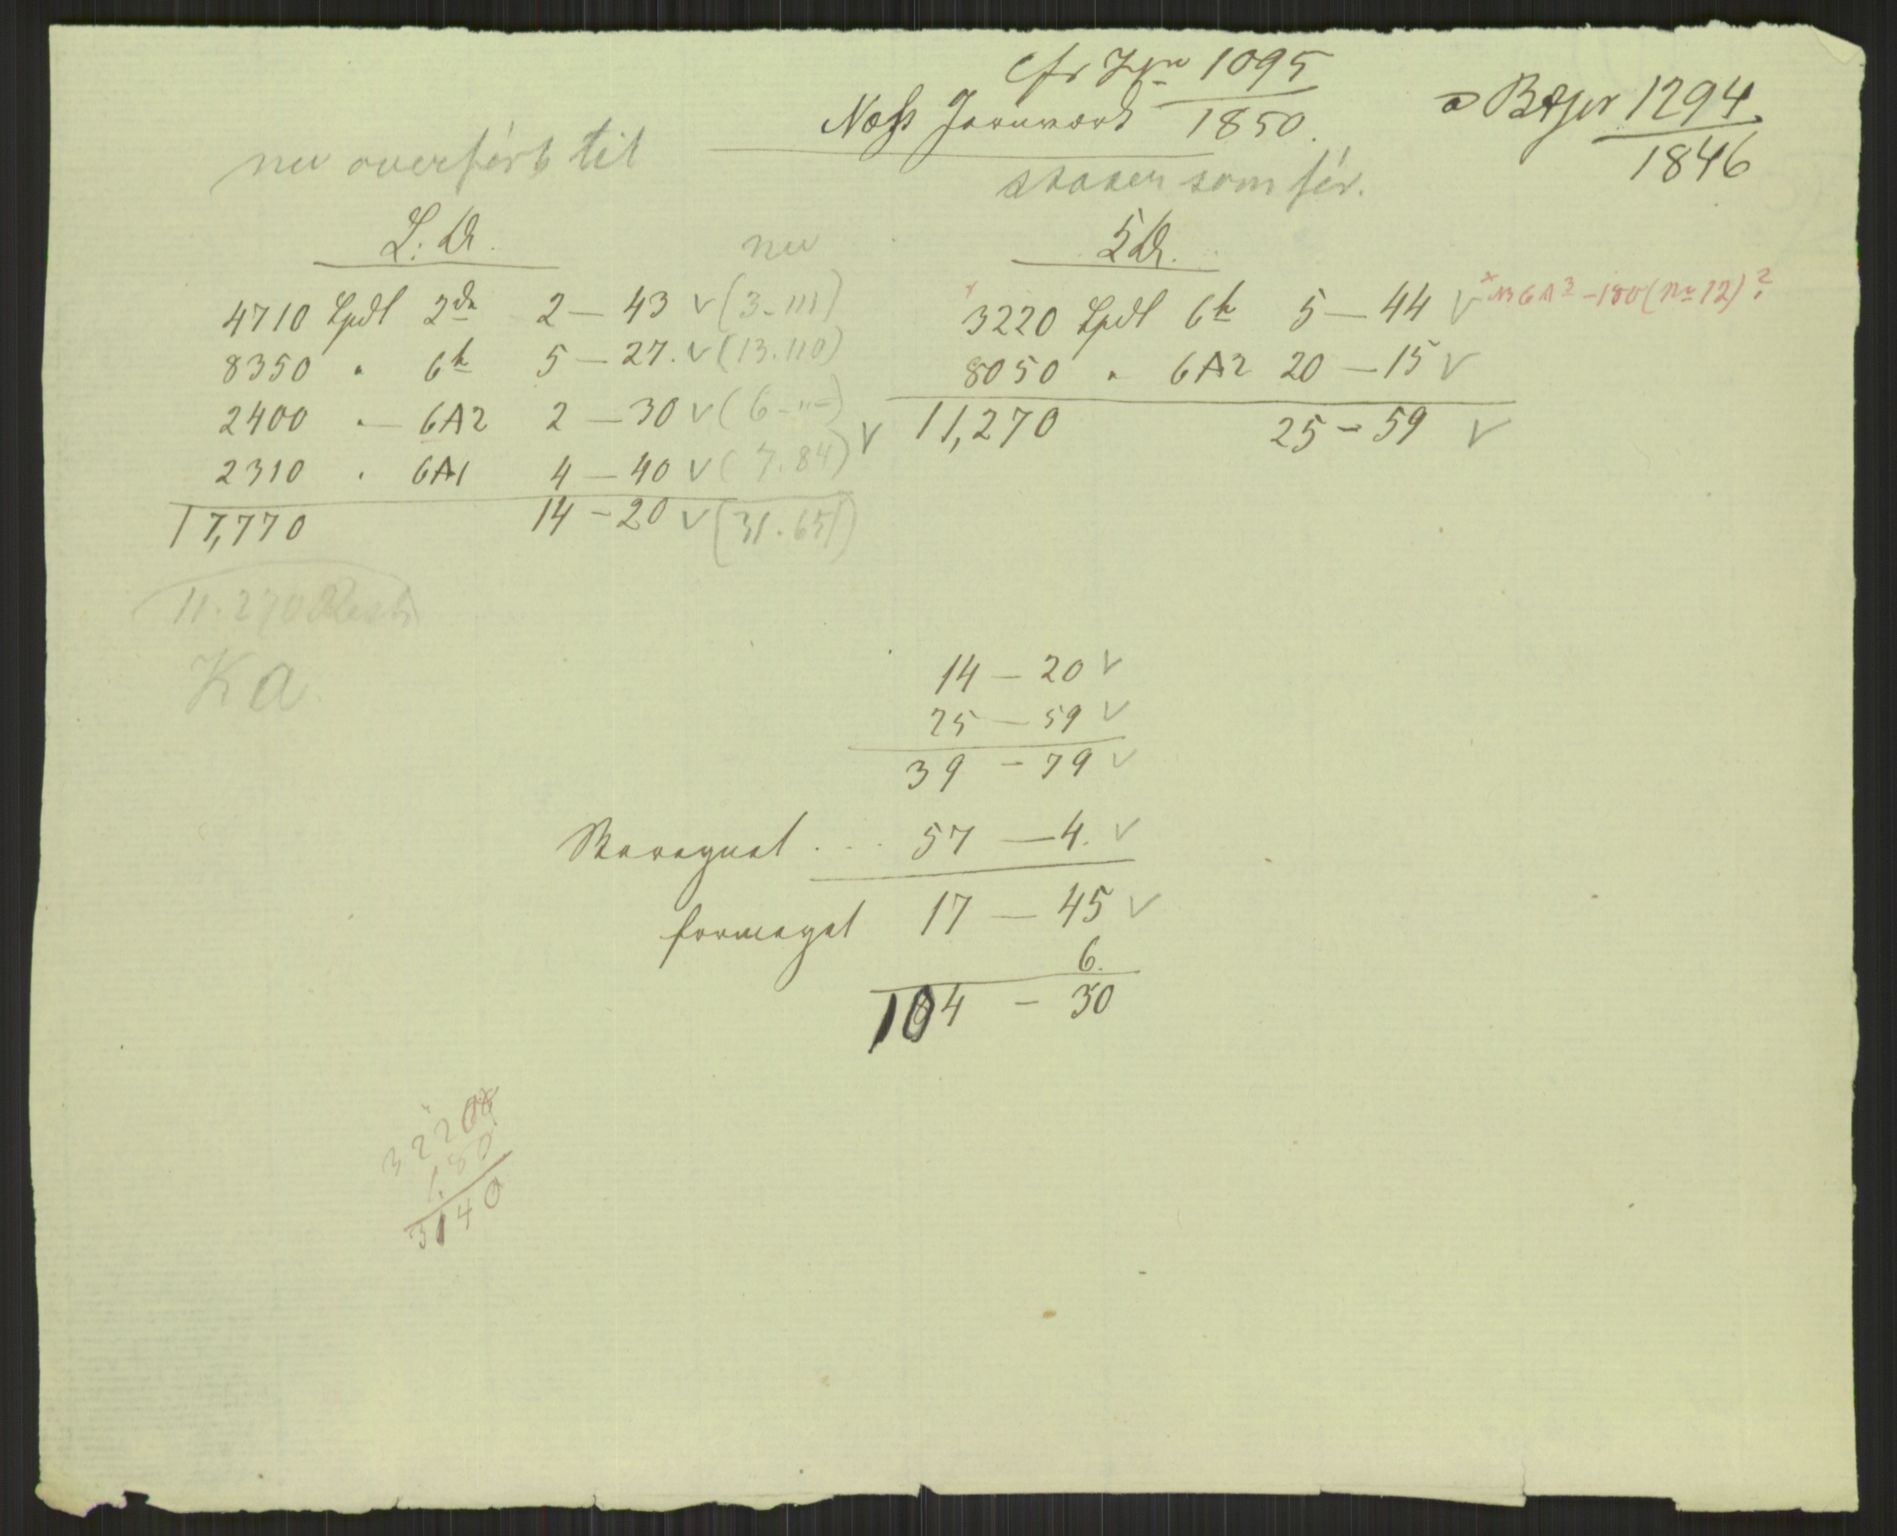 cfr Jfn 1095
Næss Jernværk 1850.
ɔ: BAJr 1294
1846
nu overført til
staaer som før.
L: A.
nu
4710 Lpdl 2da 2 – 43 v (3–111)
8350 " 6te 5 – 27. v (13.110)
2400 " 6A2 2 – 30 v (6–"–)
2310 " 6A1 4 – 40 v (7.84) v
17,770 14 – 20 v (31.65)
11.270 Rest
Ka.
5 A.
× 3220 Lpdl 6te 5 – 44 v × NB 6A3 – 180 (No 12)?
8050 " 6A2 20 – 15 v
11,270 25 – 59 v
14 – 20 v
25 – 59 v
39 – 79 v
Beregnet . . . 57 – 4. v
formeget 17 – 45 v
6.
104 – 30
3220
180
3140